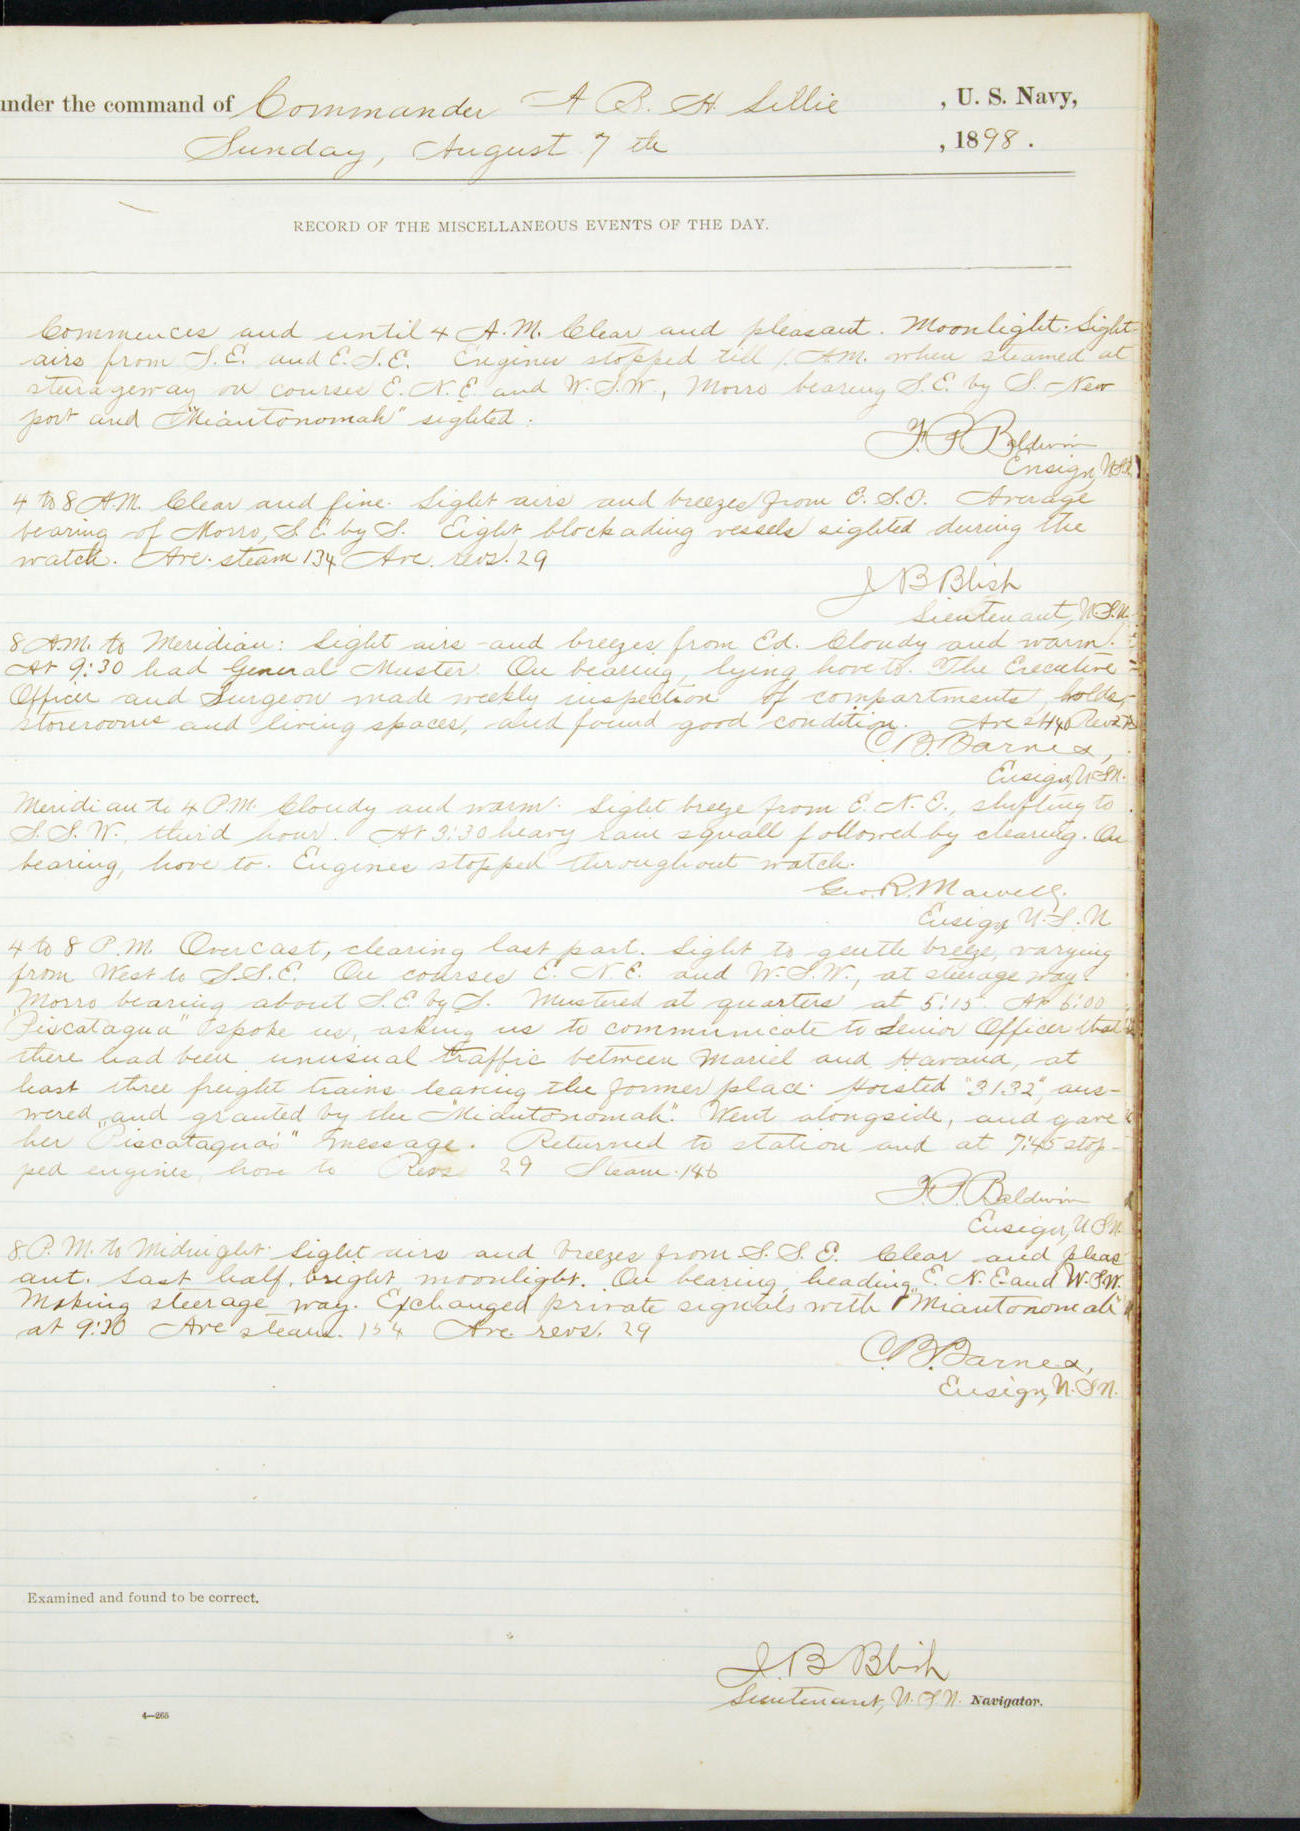 under the command of Commander A. B. H. Lillie , U. S. Navy,
Sunday, August 7th , 1898.
RECORD OF THE MISCELLANEOUS EVENTS OF THE DAY.
Commences and until 4 A.M. Clear and pleasant. Moonlight. Light
airs from S.E. and E.S.E. Engines stopped till 1. A.M. when steamed at
steerageway on courses E.N.E. and W.S.W., Morro bearing S.E. by S. New
port and "Miantonomah" sighted.
F. P. Baldwin
Ensign, U.S.N.
4 to 8 A.M. Clear and fine. Light airs and breezes from E.S.E. Average
bearing of Morro, S.E. by S. Eight blockading vessels sighted during the
watch. Ave. steam 134 Ave. revs. 29
J B Blish
Lieutenant, U.S.N.
8 A.M. to Meridian: Light airs and breezes from Ed. Cloudy and warm.
At 9:30 had General Muster. On bearing, lying hove to. The Executive
Officer and Surgeon made weekly inspection of compartments, holds,
storerooms and living spaces, and found good condition. Ave st 140 Revs
C. B. Barnes,
Ensign, U.S.N.
Meridian to 4 P.M. Cloudy and warm. Light breeze from E.N.E., shifting to
S.S.W., third hour. At 3:30 heavy rain squall followed by clearing. On
bearing, hove to. Engines stopped throughout watch.
Geo. R. Marvell.
Ensign U.S.N
4 to 8 P.M. Overcast, clearing last part. Light to gentle breeze, varying
from West to S.S.E. On courses E.N.E. and W.S.W., at steerage way.
Morro bearing about S.E. by S. Mustered at quarters at 5:15 At 6:00
"Piscataqua" spoke us, asking us to communicate to Senior Officer that
there had been unusual traffic between Mariel and Havana, at
least three freight trains leaving the former place. Hoisted "3132", ans-
wered and granted by the "Miantonomah". Went alongside, and gave
her "Piscataqua's" message. Returned to station and at 7:45 stop-
ped engines, hove to Revs 29 Steam. 146
F. P. Baldwin
Ensign, U.S.N.
8 P.M. to Midnight. Light airs and breezes from S.S.E. Clear and pleas
ant. Last half, bright moonlight. On bearing, heading E.N.E. and W.S.W.
Making steerage way. Exchanged private signals with "Miantonomah"
at 9:30 Ave steam. 154 Ave. revs. 29
C. B. Barnes,
Ensign, U.S.N.
Examined and found to be correct.
J. B Blish
Lieutenant, U.S.N. Navigator.
4—266